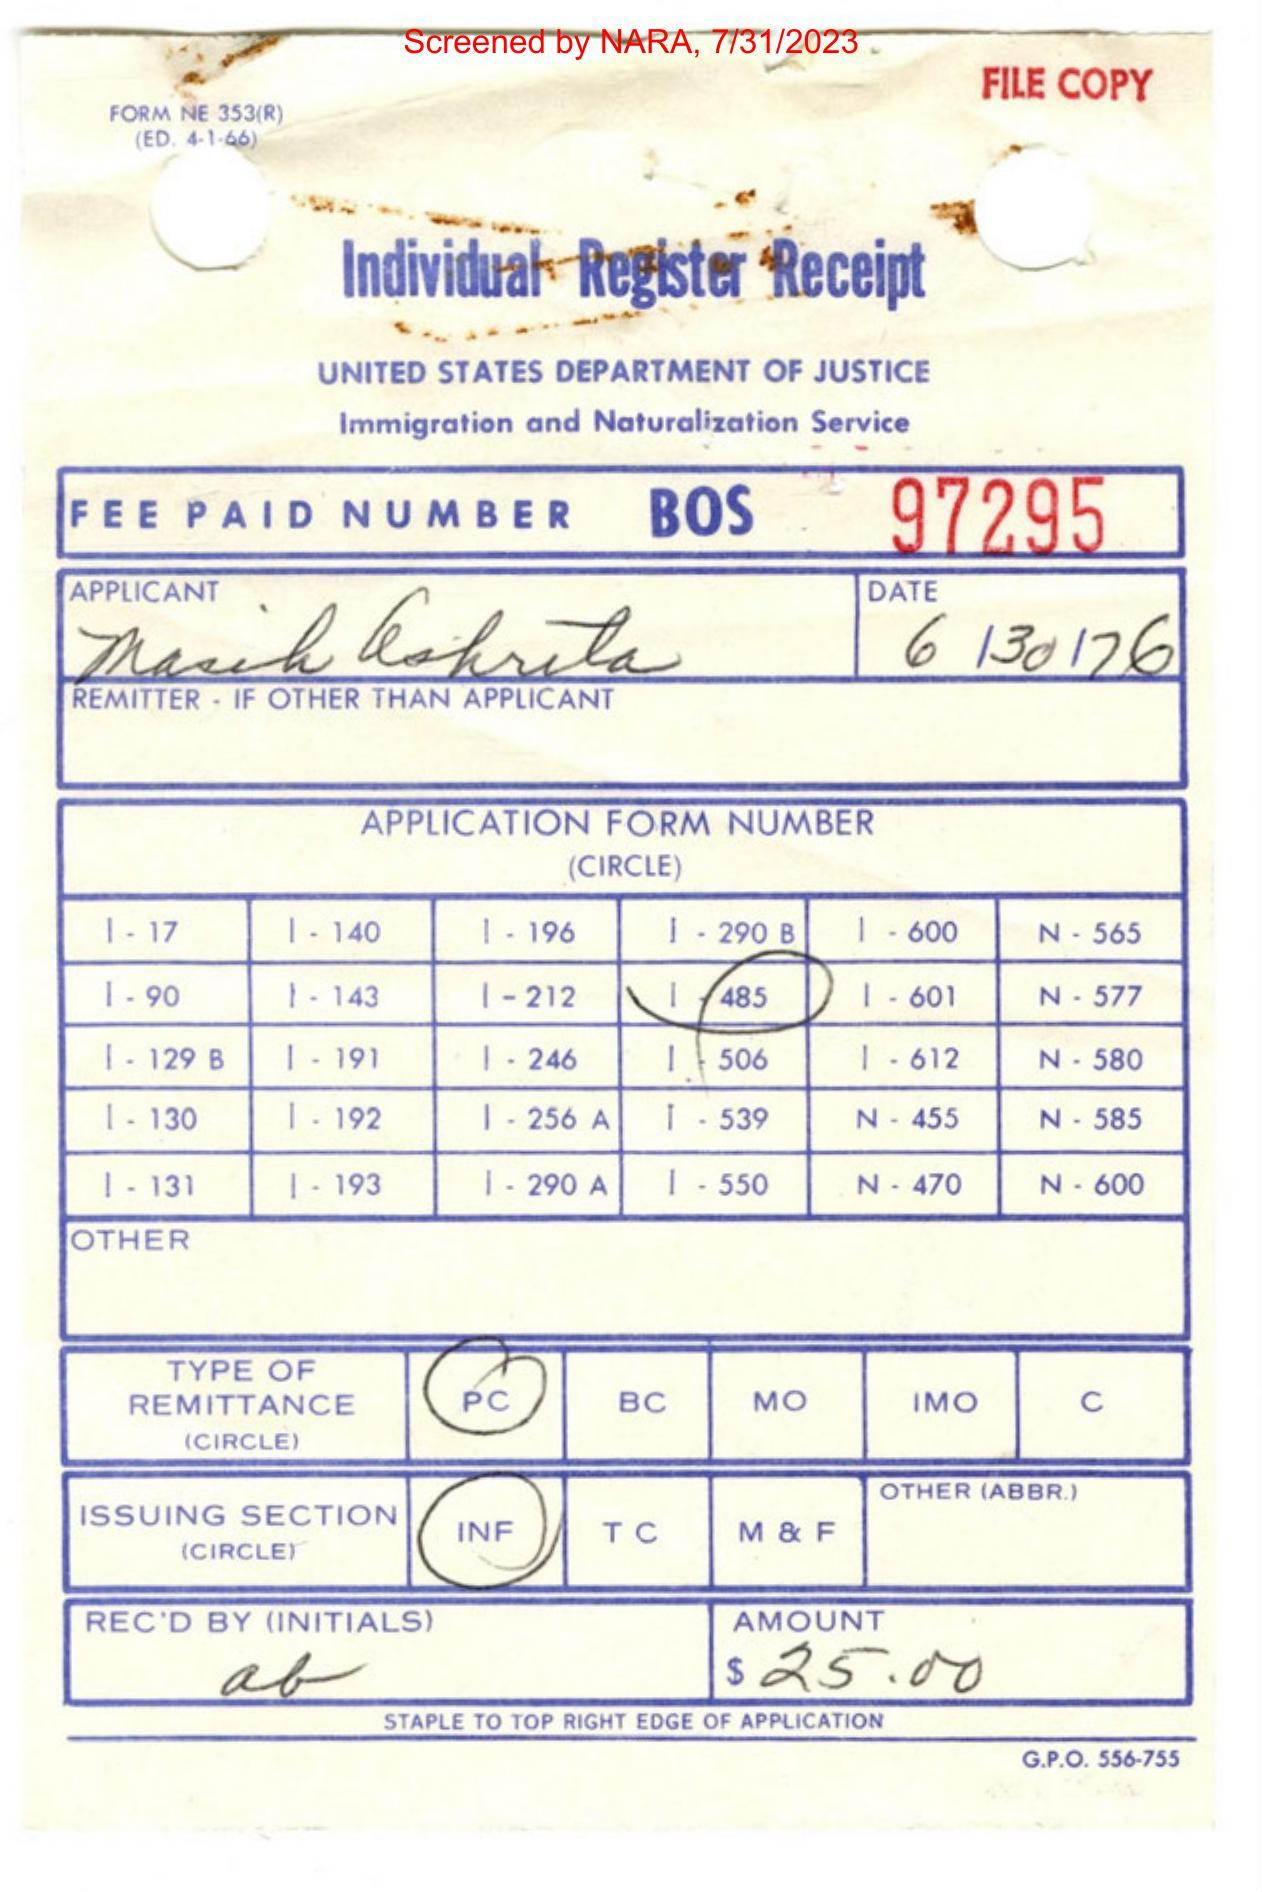 Screened by NARA, 7/31/2023
FILE COPY
FORM NE 353(R)
(ED. 4-1-66)
Individual Register Receipt
UNITED STATES DEPARTMENT OF JUSTICE
Immigration and Naturalization Service
FEE PAID NUMBER BOS 97295
APPLICANT DATE
Masih Ashrita 6/30/76
REMITTER - IF OTHER THAN APPLICANT
APPLICATION FORM NUMBER
(CIRCLE)
I - 17 I - 140 I - 196 I - 290 B I - 600 N - 565
I - 90 I - 143 I - 212 I - 485 I - 601 N - 577
I - 129 B I - 191 I - 246 I - 506 I - 612 N - 580
I - 130 I - 192 I - 256 A I - 539 N - 455 N - 585
I - 131 I - 193 I - 290 A I - 550 N - 470 N - 600
OTHER
TYPE OF
REMITTANCE PC BC MO IMO C
(CIRCLE)
OTHER (ABBR.)
ISSUING SECTION INF T C M & F
(CIRCLE)
REC'D BY (INITIALS) AMOUNT
ab $ 25.00
STAPLE TO TOP RIGHT EDGE OF APPLICATION
G.P.O. 556-755